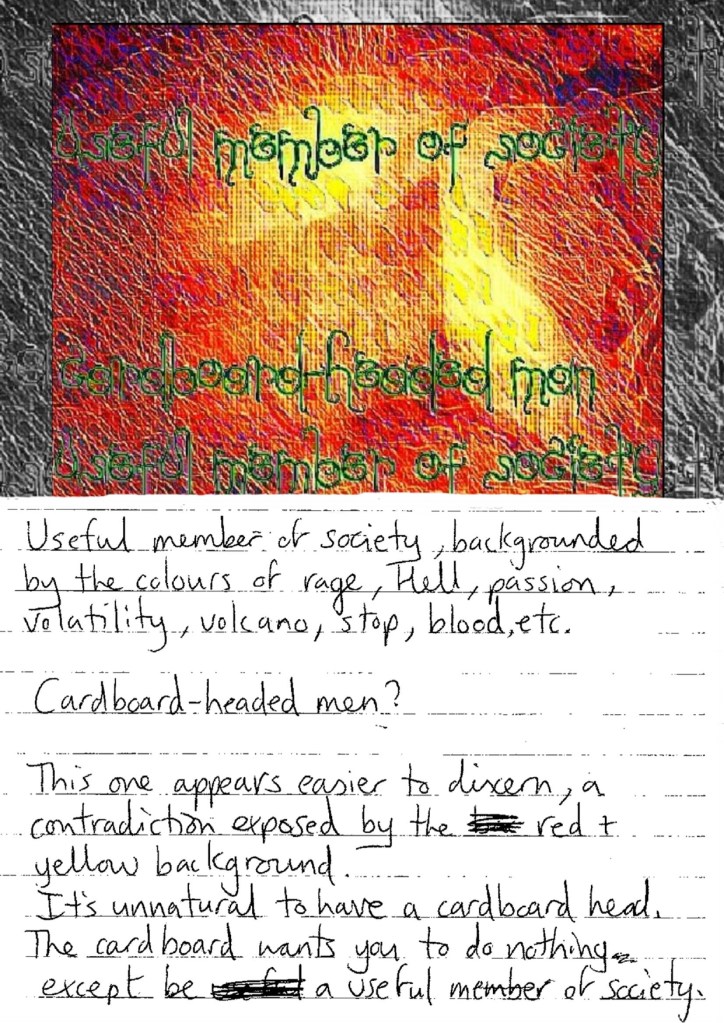 Useful member of society
cardboard-headed men
Useful member of society
Useful member of society, backgrounded
by the colours of rage, Hell, passion,
volatility, volcano, stop, blood, etc.
Cardboard-headed men?
This one appears easier to dixern, a
contradiction exposed by the red +
yellow background.
It's unnatural to have a cardboard head.
The cardboard wants you to do nothing
except be a useful member of society.